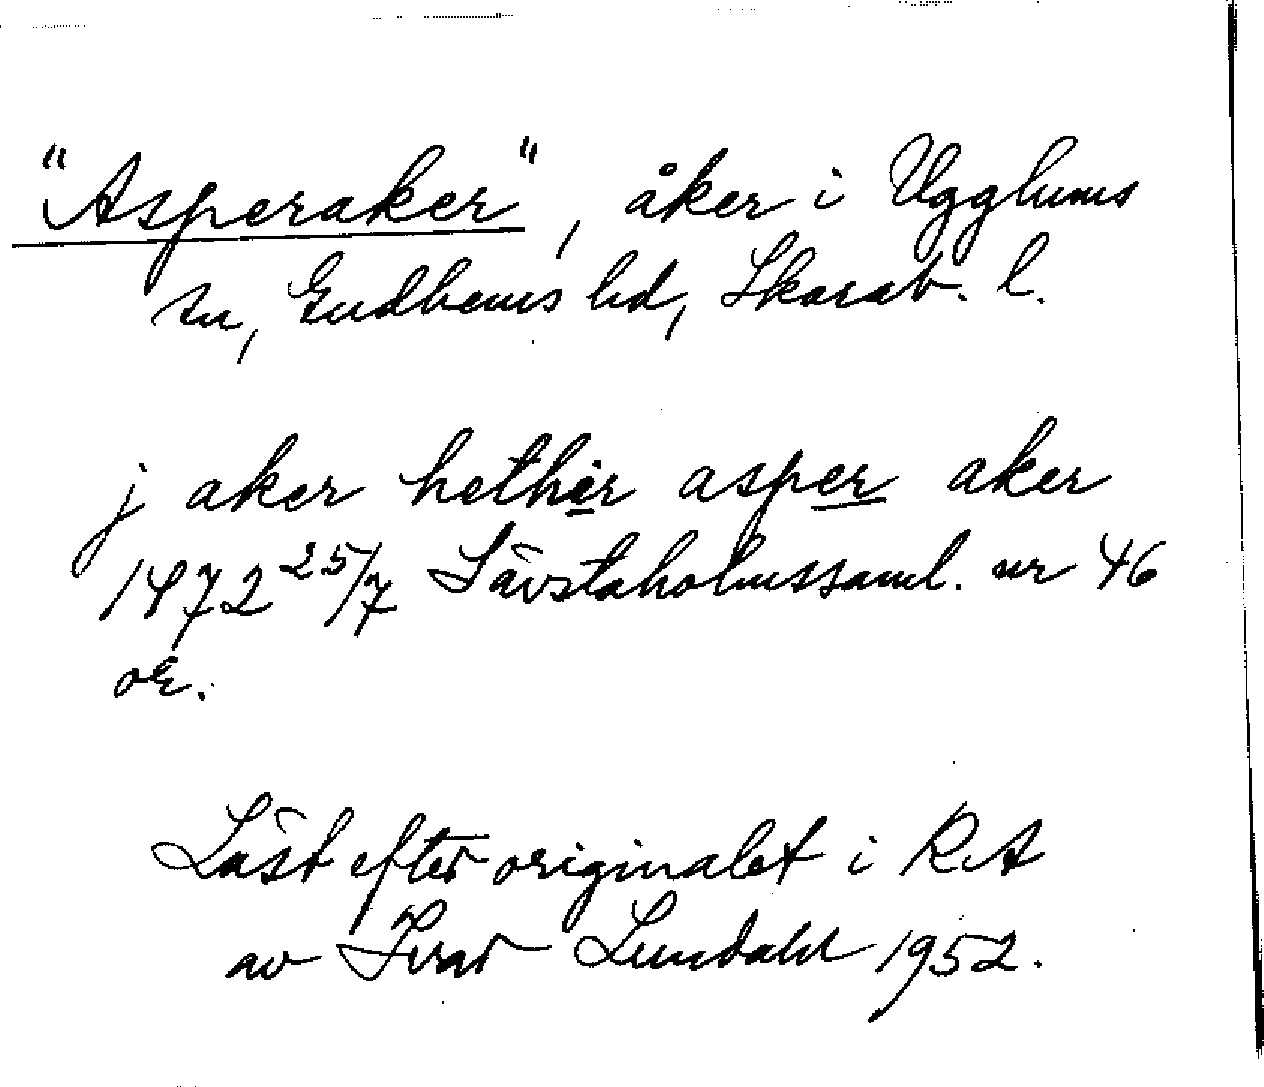 "Asperaker", åker i Ugglums
sn, Gudhems hd, Skarab. l.
j aker hether asper aker
1472 25/7 Sävstaholmssaml. nr 46
or.
Läst efter originalet i RA
av Ivar Lundahl 1952.